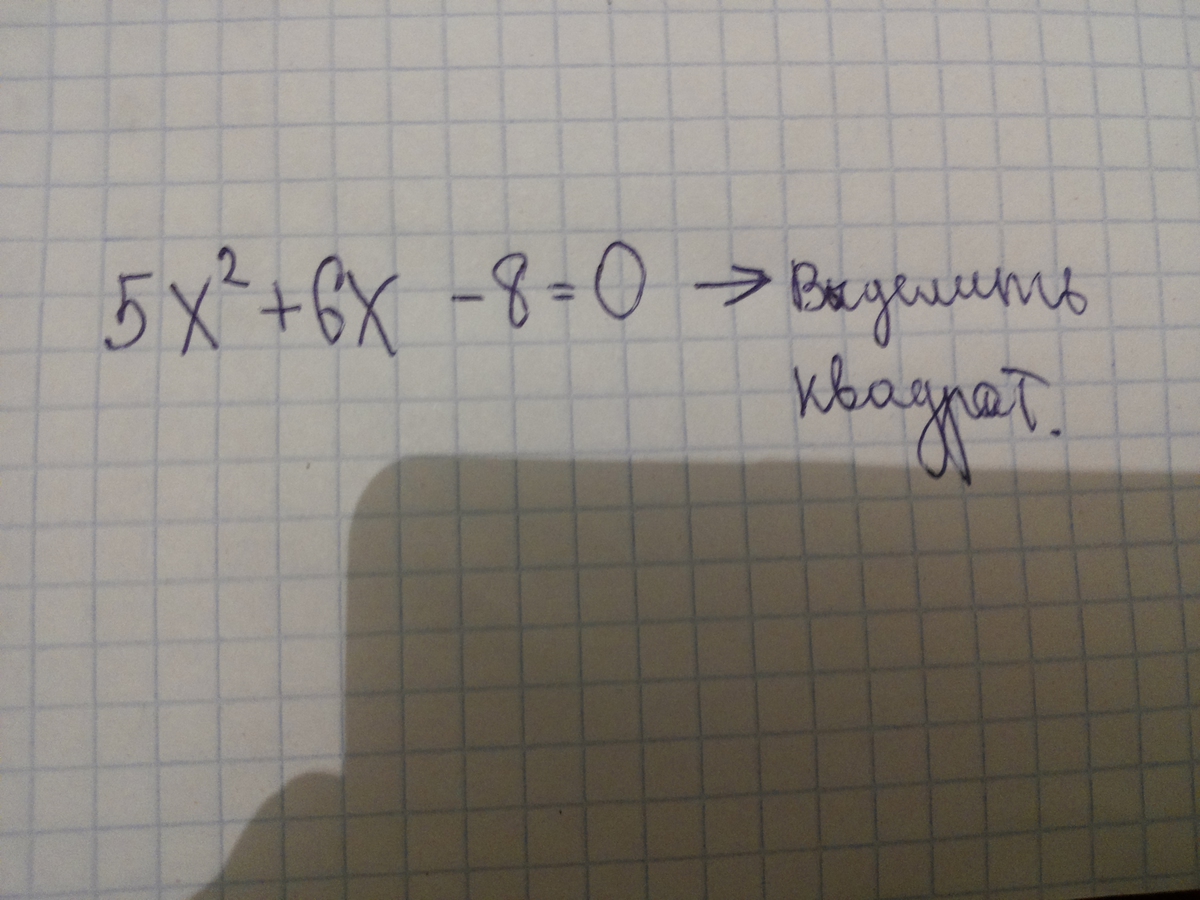 5x² + 6x - 8 = 0 → Выделить
квадрат.